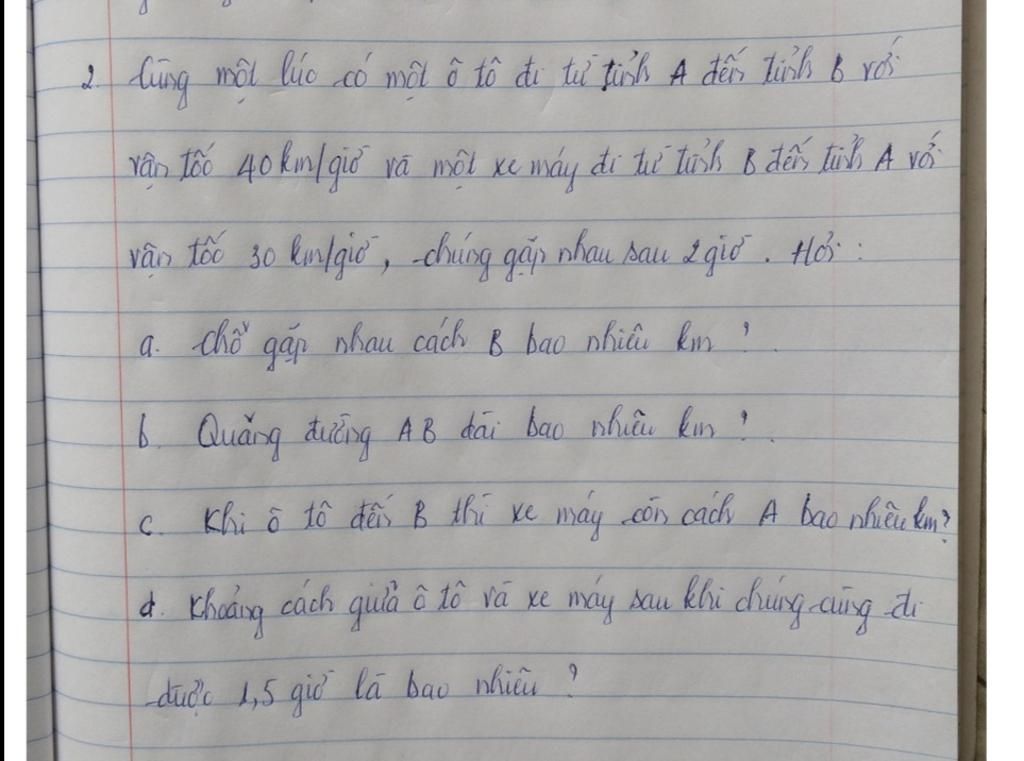 2. Cũng một lúc có một ô tô đi từ tỉnh A đến tỉnh B với
vận tốc 40 km/giờ và một xe máy đi từ tỉnh B đến tỉnh A với
vận tốc 30 km/giờ, chúng gặp nhau sau 2 giờ. Hỏi:
a. Chỗ gặp nhau cách B bao nhiêu km?
b. Quãng đường AB dài bao nhiêu km?
c. Khi ô tô đến B thì xe máy còn cách A bao nhiêu km?
d. Khoảng cách giữa ô tô và xe máy sau khi chúng cùng đi
được 1,5 giờ là bao nhiêu?